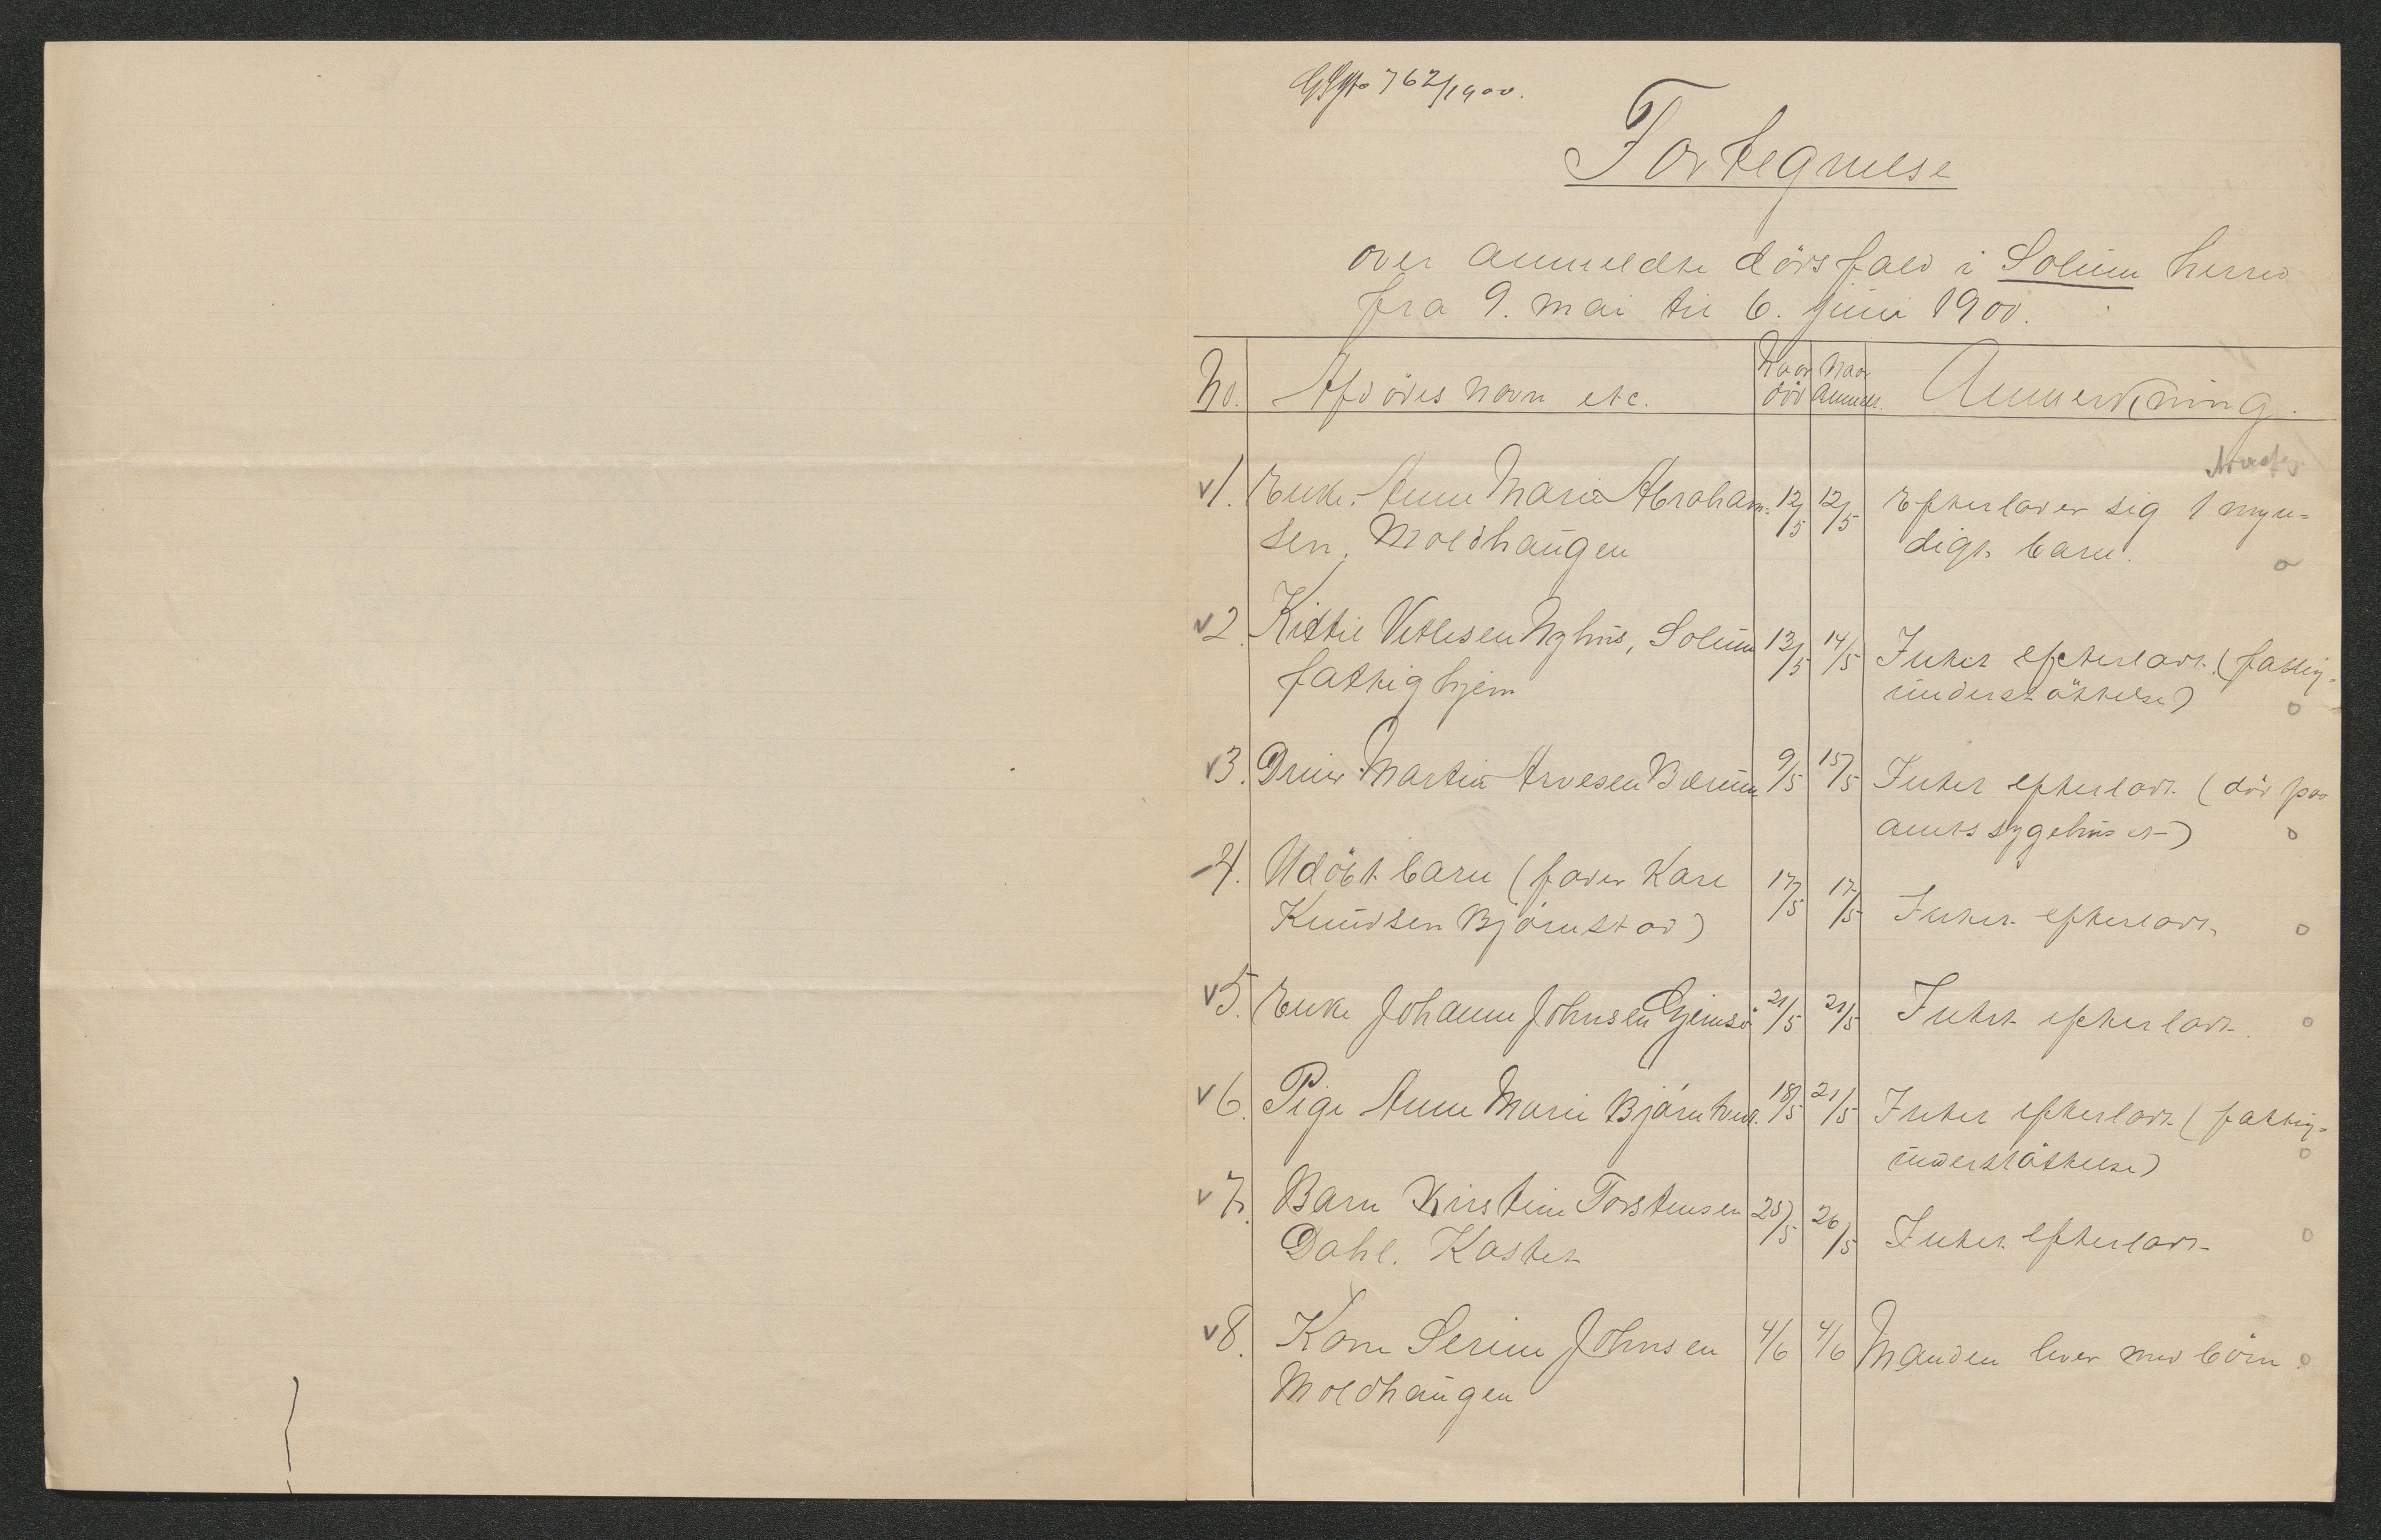 762/1900.
Fortegnelse
over anmeldte dörsfald i Solum herred
fra 9. mai til 6. juni 1900.
No. Afdödes navn etc. Naar död Naar anmeldt. Anmerkning.
v 1. Enke Anne Marie Abraham- 12/5 12/5 Efterlader sig 1 myn-
sen, Moldhaugen digt barn.
v 2. Kittil Vetlesen Nyhus, Solum 13/5 14/5 Intet efterladt. (fattig-
fattighjem understöttelse) o
v 3. Martin Arvesen Bærum 9/5 15/5 Intet efterladt. (död paa
amtssygehuset) o
4. Udöbt barn (fader Karl 17/5 17/5 Intet efterladt. o
Knudsen Björnstad)
v 5. Enke Johanne Johnsen Gjemsö 21/5 21/5 Intet efterladt. o
v 6. Pige Anne Marie Björntvedt. 18/5 21/5 Intet efterladt. (fattig-
understöttelse) o
v 7. Barn Kirstine Torstensen 25/5 26/5 Intet efterladt. o
Dahl. Kastet
v 8. Kone Serine Johnsen 4/6 4/6 Manden lever med börn. o
Moldhaugen